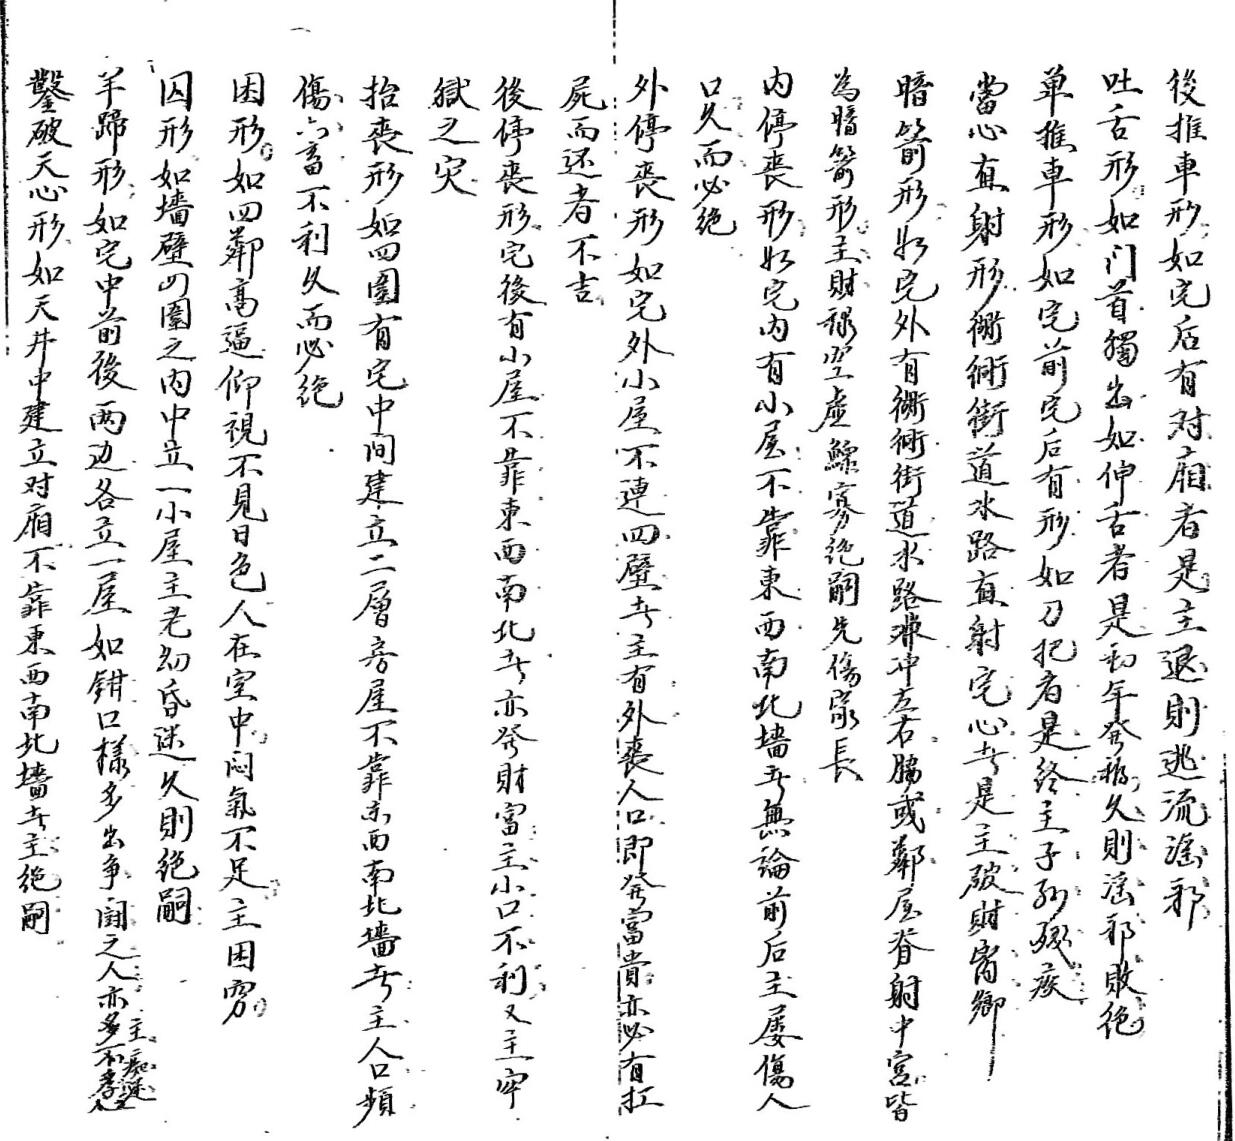 後推車形如宅后有对廂者是主退則逃流淫邪
吐舌形如门首獨出如伸舌者是初年発福久則淫邪敗绝
单推車形如宅前宅后有形如刀把者是终主子孙殘疾
當心直射形衚衕街道水路直射宅心者是主破財离鄉
暗箭形如宅外有衚衕街道水路冲左右脇或鄰屋脊射中宫皆
為暗箭形主財祿空虚鰥寡绝嗣先傷家長
内停喪形如宅内有小屋不靠東西南北墙者無論前后主屡傷人
口久而必绝
外停喪形如宅外小屋不連四壁者主有外喪人口即発富貴亦必有扛
屍而还者不吉
後停喪形宅後有小屋不靠東西南北者亦発財富主小口不利又主牢
獄之災
抬喪形如四圍有宅中间建立二層房屋不靠东西南北墻者主人口頻
傷六畜不利久而必绝
困形如四鄰高逼仰視不見日色人在室中闷氣不足主困窮
囚形如墻壁四圍之内中立一小屋主老幼昏迷久則绝嗣
羊蹄形如宅中前後两边各立一屋如鉗口樣多出争闘之人亦多不孝主痴迷
鑿破天心形如天井中建立对廂不靠東西南北墻者主绝嗣